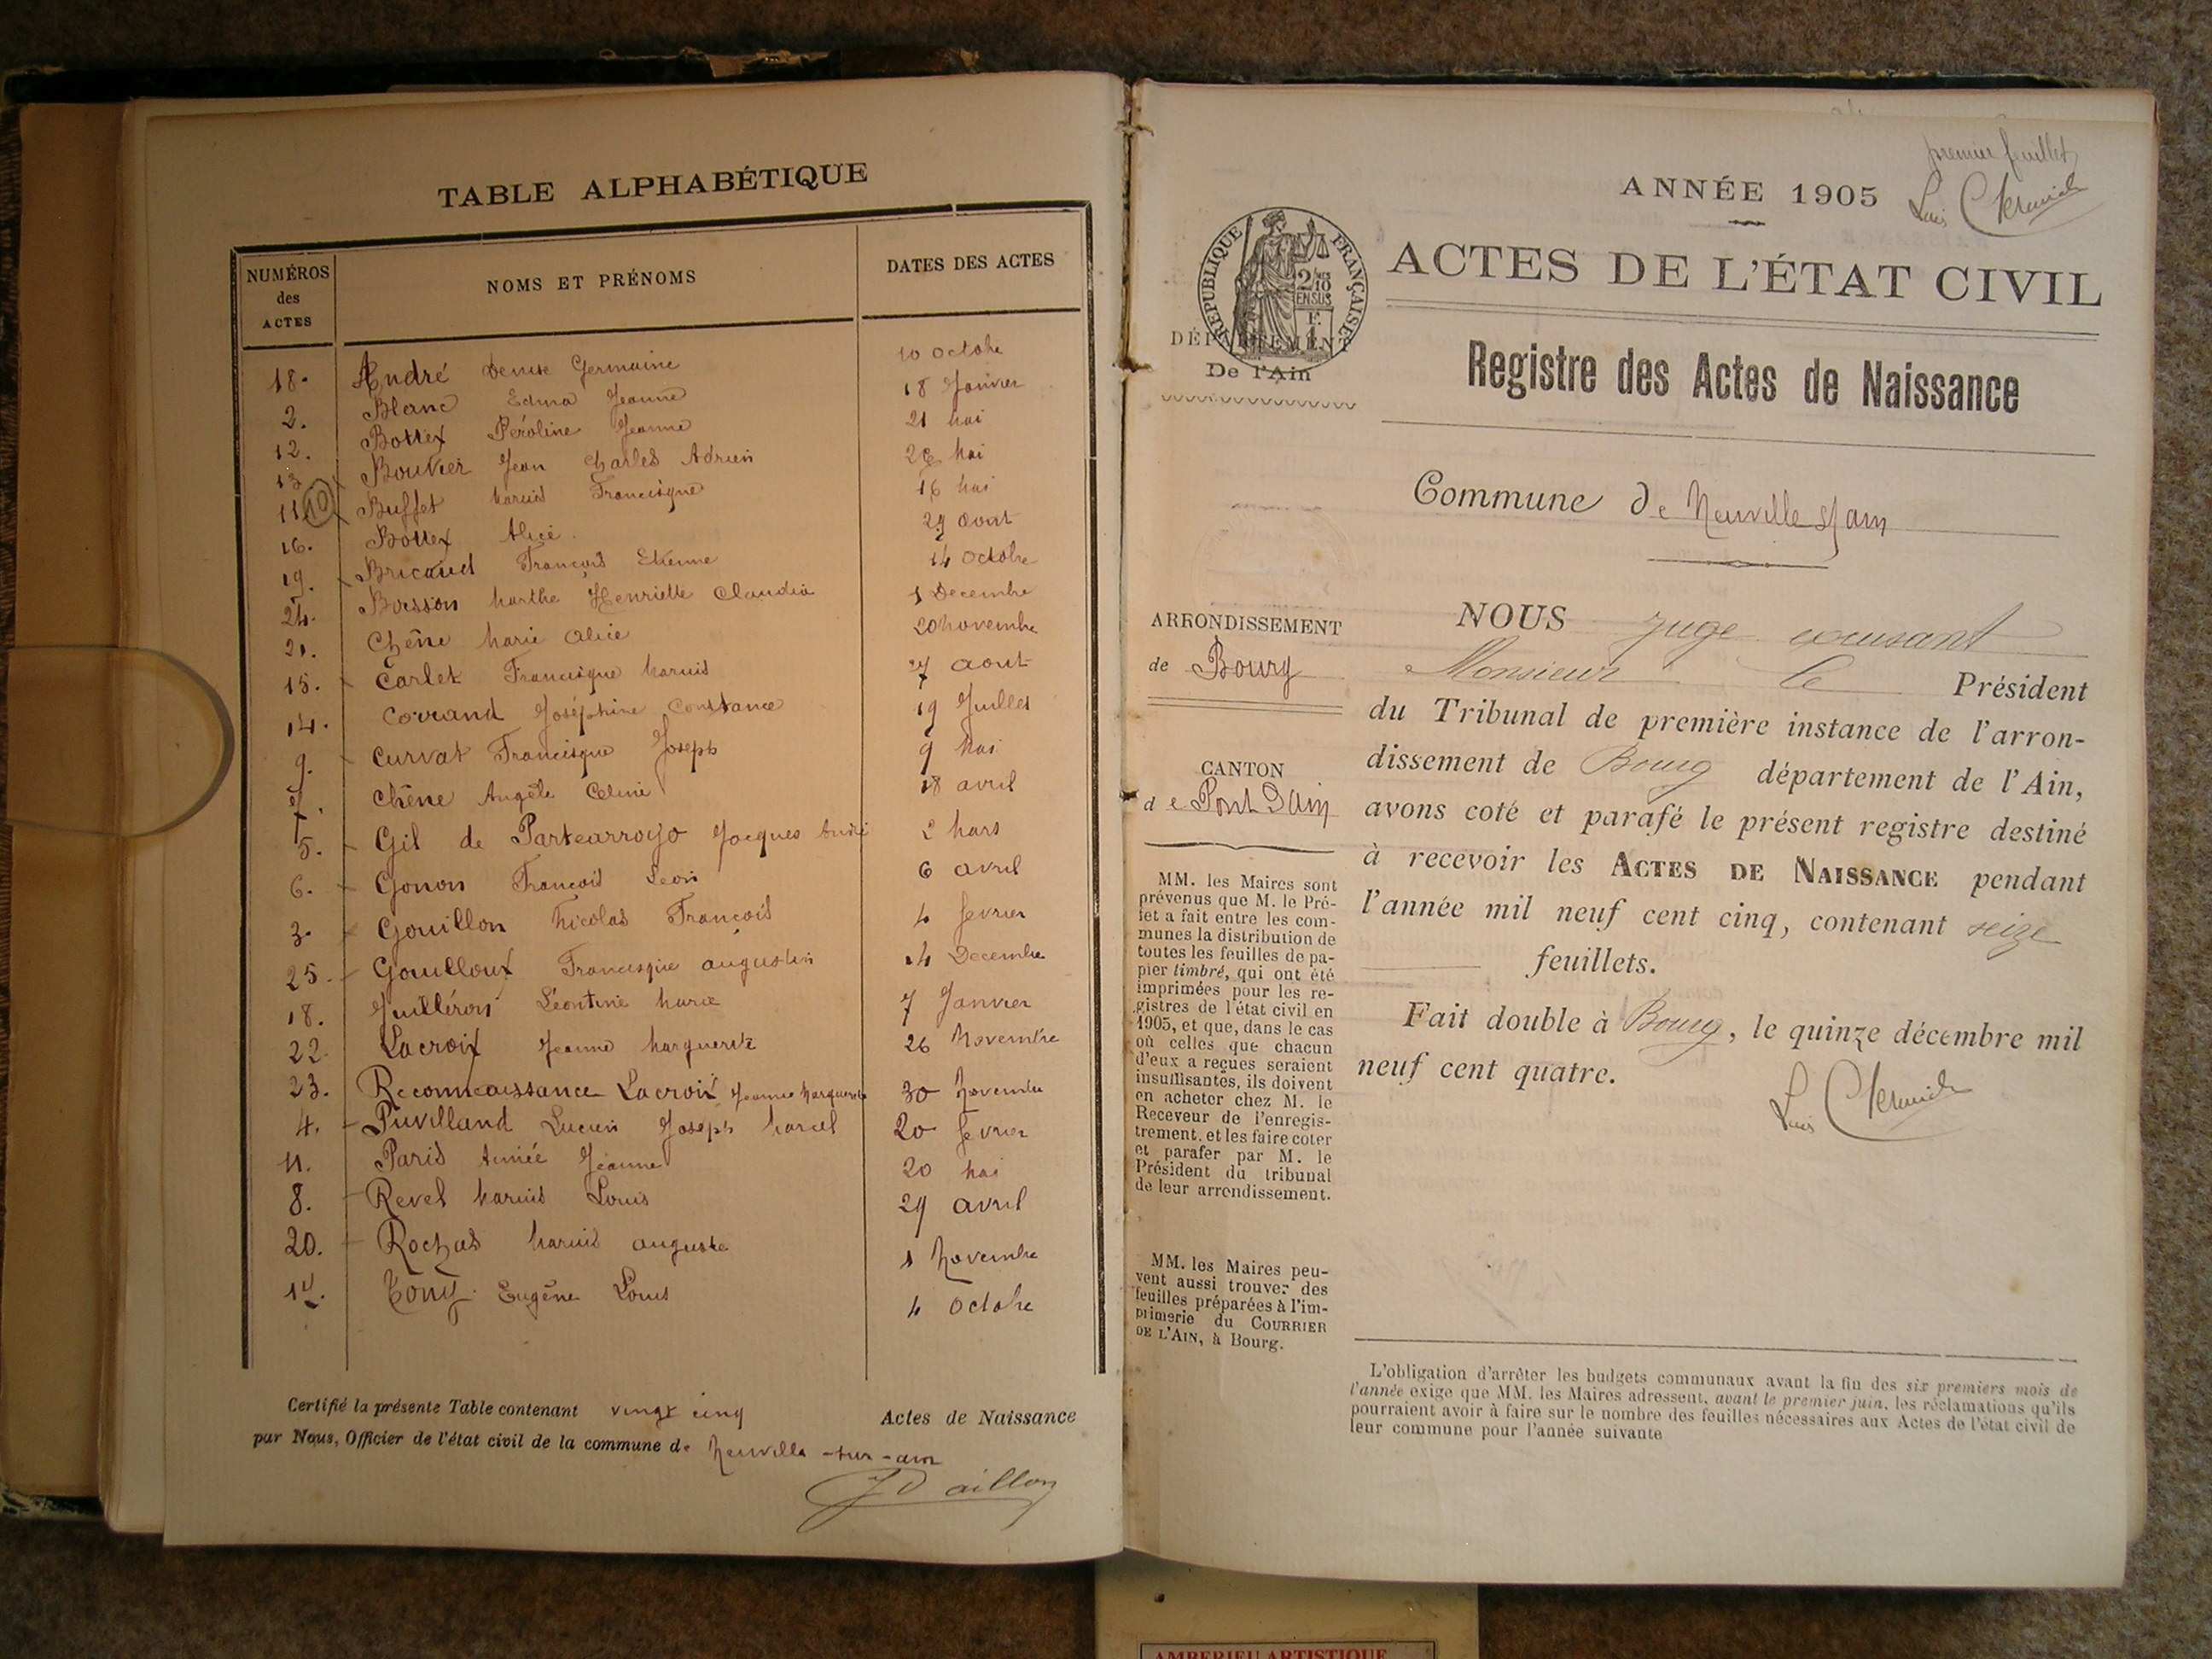 TABLE ALPHABÉTIQUE
NUMÉROS des ACTES
NOMS ET PRÉNOMS
DATES DES ACTES
18. André Denise Germaine 10 octobre
2. Blanc Edma Jeanne 18 Janvier
12. Bottex Péroline Jeanne 21 Mai
13 Bouvier Jean Charles Adrien 28 Mai
11 10 Buffet Marius Francisque 16 Mai
16. Bottex Alice 29 aout
19. Bricaud François Etienne 14 octobre
24. Boisson Marthe Henriette Claudia 1 Decembre
21. Chêne Marie Alice 20 novembre
15. Carlet Francisque Marius 27 aout
14. Corrand Joséphine Constance 19 Juillet
9. Curvat Francisque Joseph 9 Mai
7. Chêne Angèle Celine 18 avril
5. Gil de Partearroyo Jacques André 2 Mars
6. Gonon François Leon 6 avril
3. Gouillon Nicolas François 4 fevrier
25. Gouilloux Francisque augustin 14 Decembre
18. Juilléron Léontine Marie 7 Janvier
22. Lacroix Jeanne Marguerite 26 Novembre
23. Reconnaissance Lacroix Jeanne Marguerite 30 Novembre
4. Puvilland Lucien Joseph Marcel 20 fevrier
11. Paris Aimée Jeanne 20 Mai
8. Revel Marius Louis 29 avril
20. Rochas Marius auguste 1 Novembre
17. Tony Eugène Louis 4 octobre
Certifié la présente Table contenant vingt cinq Actes de Naissance
par Nous, Officier de l'état civil de la commune de Neuville-sur-ain
aillon
premier feuillet
ANNÉE 1905
RÉPUBLIQUE FRANÇAISE
2/10 EN SUS
F. 1
ACTES DE L'ÉTAT CIVIL
DÉPARTEMENT
De l'Ain
Registre des Actes de Naissance
Commune de Neuville s/ ain
ARRONDISSEMENT
de Bourg
CANTON
de Pont d'Ain
MM. les Maires sont
prévenus que M. le Pré-
fet a fait entre les com-
munes la distribution de
toutes les feuilles de pa-
pier timbré, qui ont été
imprimées pour les re-
gistres de l'état civil en
1905, et que, dans le cas
où celles que chacun
d'eux a reçues seraient
insuffisantes, ils doivent
en acheter chez M. le
Receveur de l'enregis-
trement. et les faire coter
et parafer par M. le
Président du tribunal
de leur arrondissement.
MM. les Maires peu-
vent aussi trouver des
feuilles préparées à l'im-
primerie du COURRIER
DE L'AIN, à Bourg.
NOUS Juge excusant
Monsieur le Président
du Tribunal de première instance de l'arron-
dissement de Bourg département de l'Ain,
avons coté et parafé le présent registre destiné
à recevoir les ACTES DE NAISSANCE pendant
l'année mil neuf cent cinq, contenant seize
feuillets.
Fait double à Bourg, le quinze décembre mil
neuf cent quatre.
L'obligation d'arrêter les budgets communaux avant la fin des six premiers mois de
l'année exige que MM. les Maires adressent, avant le premier juin, les réclamations qu'ils
pourraient avoir à faire sur le nombre des feuilles nécessaires aux Actes de l'état civil de
leur commune pour l'année suivante
AMBERIEU ARTISTIQUE